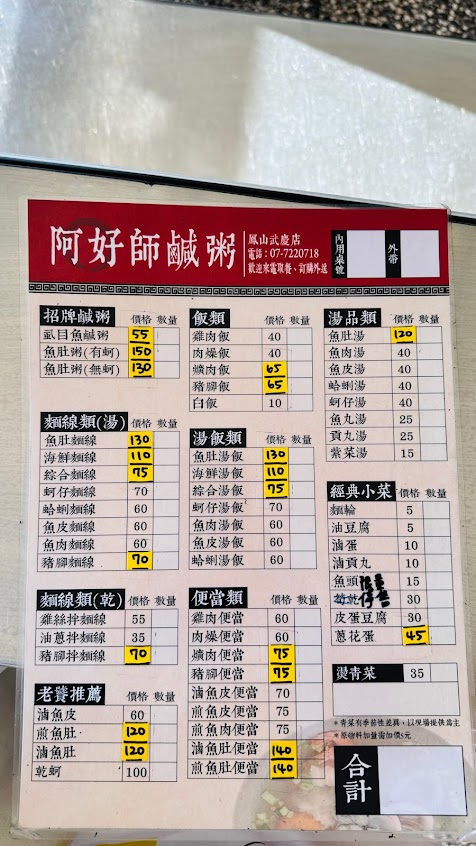 阿好師鹹粥
鳳山武慶店
電話：07-7220718
歡迎來電取餐、訂購外送
內用桌號
外帶
招牌鹹粥 價格 數量
虱目魚鹹粥 55
魚肚粥(有蚵) 150
魚肚粥(無蚵) 130
麵線類(湯) 價格 數量
魚肚麵線 130
海鮮麵線 110
綜合麵線 75
蚵仔麵線 70
蛤蜊麵線 60
魚皮麵線 60
魚肉麵線 60
豬腳麵線 70
麵線類(乾) 價格 數量
雞絲拌麵線 55
油蔥拌麵線 35
豬腳拌麵線 70
老饕推薦 價格 數量
滷魚皮 60
煎魚肚 120
滷魚肚 120
乾蚵 100
飯類 價格 數量
雞肉飯 40
肉燥飯 40
爌肉飯 65
豬腳飯 65
白飯 10
湯飯類 價格 數量
魚肚湯飯 130
海鮮湯飯 110
綜合湯飯 75
蚵仔湯飯 70
魚肉湯飯 60
魚皮湯飯 60
蛤蜊湯飯 60
便當類 價格 數量
雞肉便當 60
肉燥便當 60
爌肉便當 75
豬腳便當 75
滷魚皮便當 70
煎魚皮便當 75
煎魚肉便當 75
滷魚肚便當 140
煎魚肚便當 140
湯品類 價格 數量
魚肚湯 120
魚肉湯 40
魚皮湯 40
蛤蜊湯 40
蚵仔湯 40
魚丸湯 25
貢丸湯 25
紫菜湯 15
經典小菜 價格 數量
麵輪 5
油豆腐 5
滷蛋 10
滷貢丸 10
魚頭 15
30
皮蛋豆腐 30
蔥花蛋 45
燙青菜 35
*青菜有季節性差異，以現場提供為主
*原物料加量需加價5元
合計